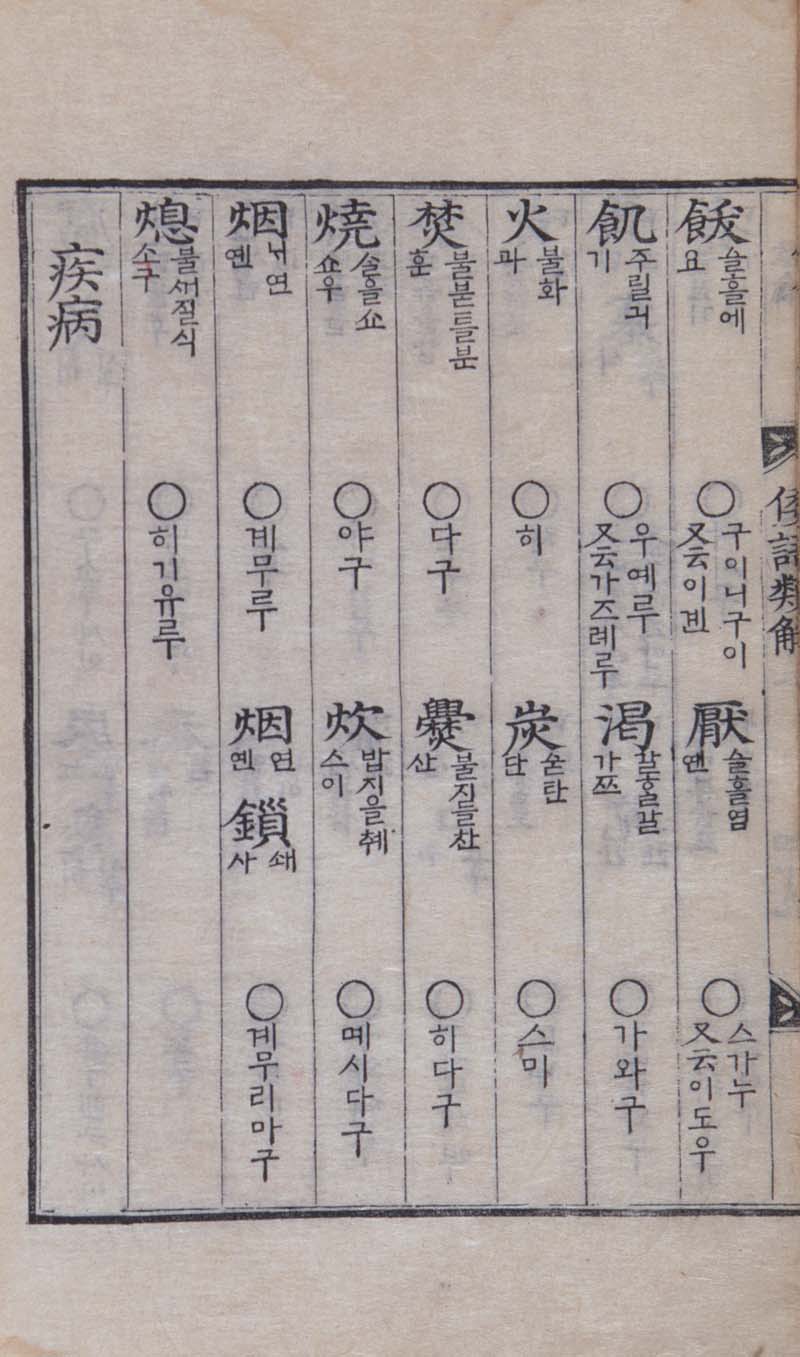 倭語類解
슬흘에 요 ○구이니구이 又云이곈 厭 슬흘염 옌 ○스가누 又云이도우
飢 주릴긔 기 ○우예루 又云가즈례루 渴 갈홀갈 가쯔 ○가와구
火 불화 과 ○히 炭 숟탄 단 ○스미
焚 불븓틀분 훈 ○다구 爨 불지를찬 산 ○히다구
燒 슬흘쇼 쇼우 ○야구 炊 밥지을췌 스이 ○메시다구
烟 ᄂᆡ연 옌 ○계무루 烟 연 옌 鎖 쇄 사 ○계무리마구
熄 불ᄭᅥ질식 소구 ○히기유루
疾病